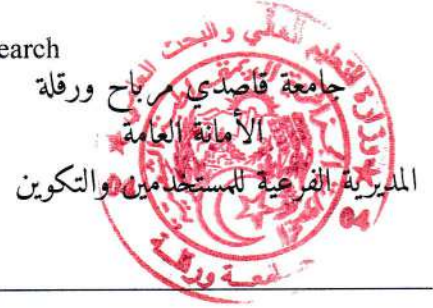 earch
جامعة قاصدي مرباح ورقلة
الأمانة العامة
المديرية الفرعية للمستخدمين والتكوين
وزارة التعليم العالي و البحث العلمي
جامعة ورقلة
04